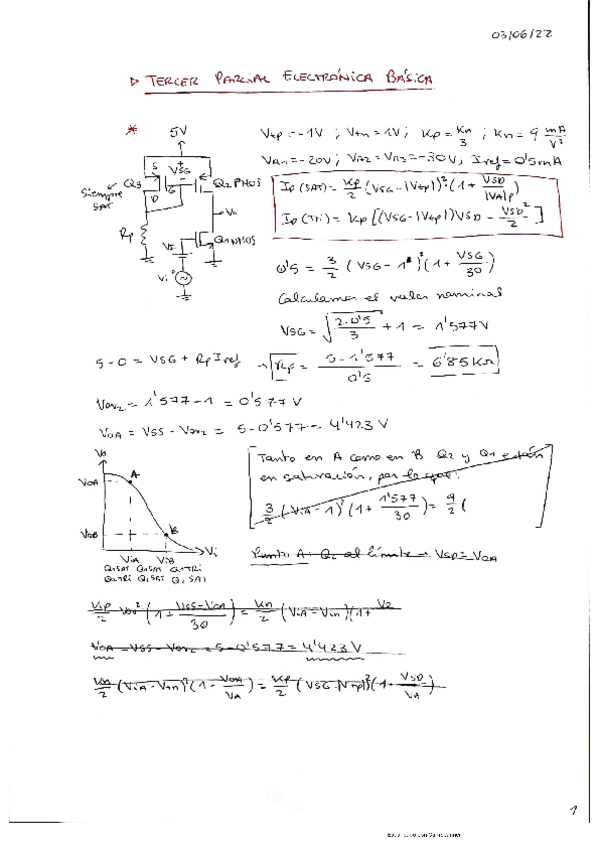 03/06/22
▷ TERCER PARCIAL ELECTRÓNICA BÁSICA
* 5V
Vtp = -1V ; Vtn = 1V ; Kp = Kn/3 ; Kn = 9 mA/V²
VA1 = -20V ; VA2 = VA3 = -30V, Iref = 0'5mA
Siempre SAT
Q3 S VSG G D Q2 PMOS
Vo
Q1 NMOS
Rp
VI
Vi
ID (SAT) = Kp/2 (VSG - |Vtp|)² (1 + VSD/|VA|p)
ID (Tri) = Kp [(VSG - |Vtp|) VSD - VSD²/2]
0'5 = 3/2 (VSG - 1)² (1 + VSG/30)
Calculamos el valor nominal
VSG = √(2·0'5/3) + 1 = 1'577V
5 - 0 = VSG + Rp Iref → Rp = (5 - 1'577)/0'5 = 6'85 KΩ
Vov2 = 1'577 - 1 = 0'577 V
VOA = VSS - Vov2 = 5 - 0'577 = 4'423 V
Vo
VOA A
VOB B
ViA ViB Vi
Q1 SAT Q1 SAT Q1 TRI
Q2 TRI Q2 SAT Q2 SAT
Tanto en A como en B Q2 y Q1 están
en saturación, por lo que:
3/2 (ViA - 1)² (1 + 1'577/30) = 9/2 (
Punto A: Q2 al límite → VSD = VOA
Kp/2 Vov² (1 + (VSS - VOA)/30) = Kn/2 (ViA - Vtn)(1 +
VOA = VSS - Vov2 = 5 - 0'577 = 4'423 V
Kn/2 (ViA - Vtn)² (1 - VOA/VA) = Kp/2 (VSG - |Vtp|)² (1 + VSD/VA)
1